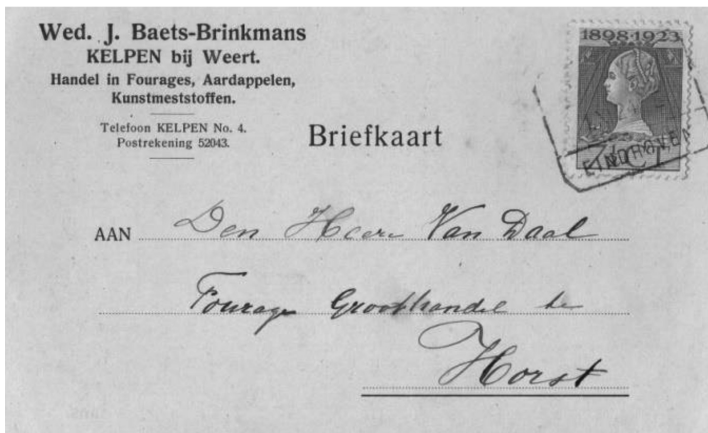 Wed. J. Baets-Brinkmans
KELPEN bij Weert.
Handel in Fourages, Aardappelen,
Kunstmeststoffen.
Telefoon KELPEN No. 4.
Postrekening 52043.
1898-1923
EINDHOVEN
Briefkaart
AAN Den Heere Van Daal
Fourage Groothandel te
Horst